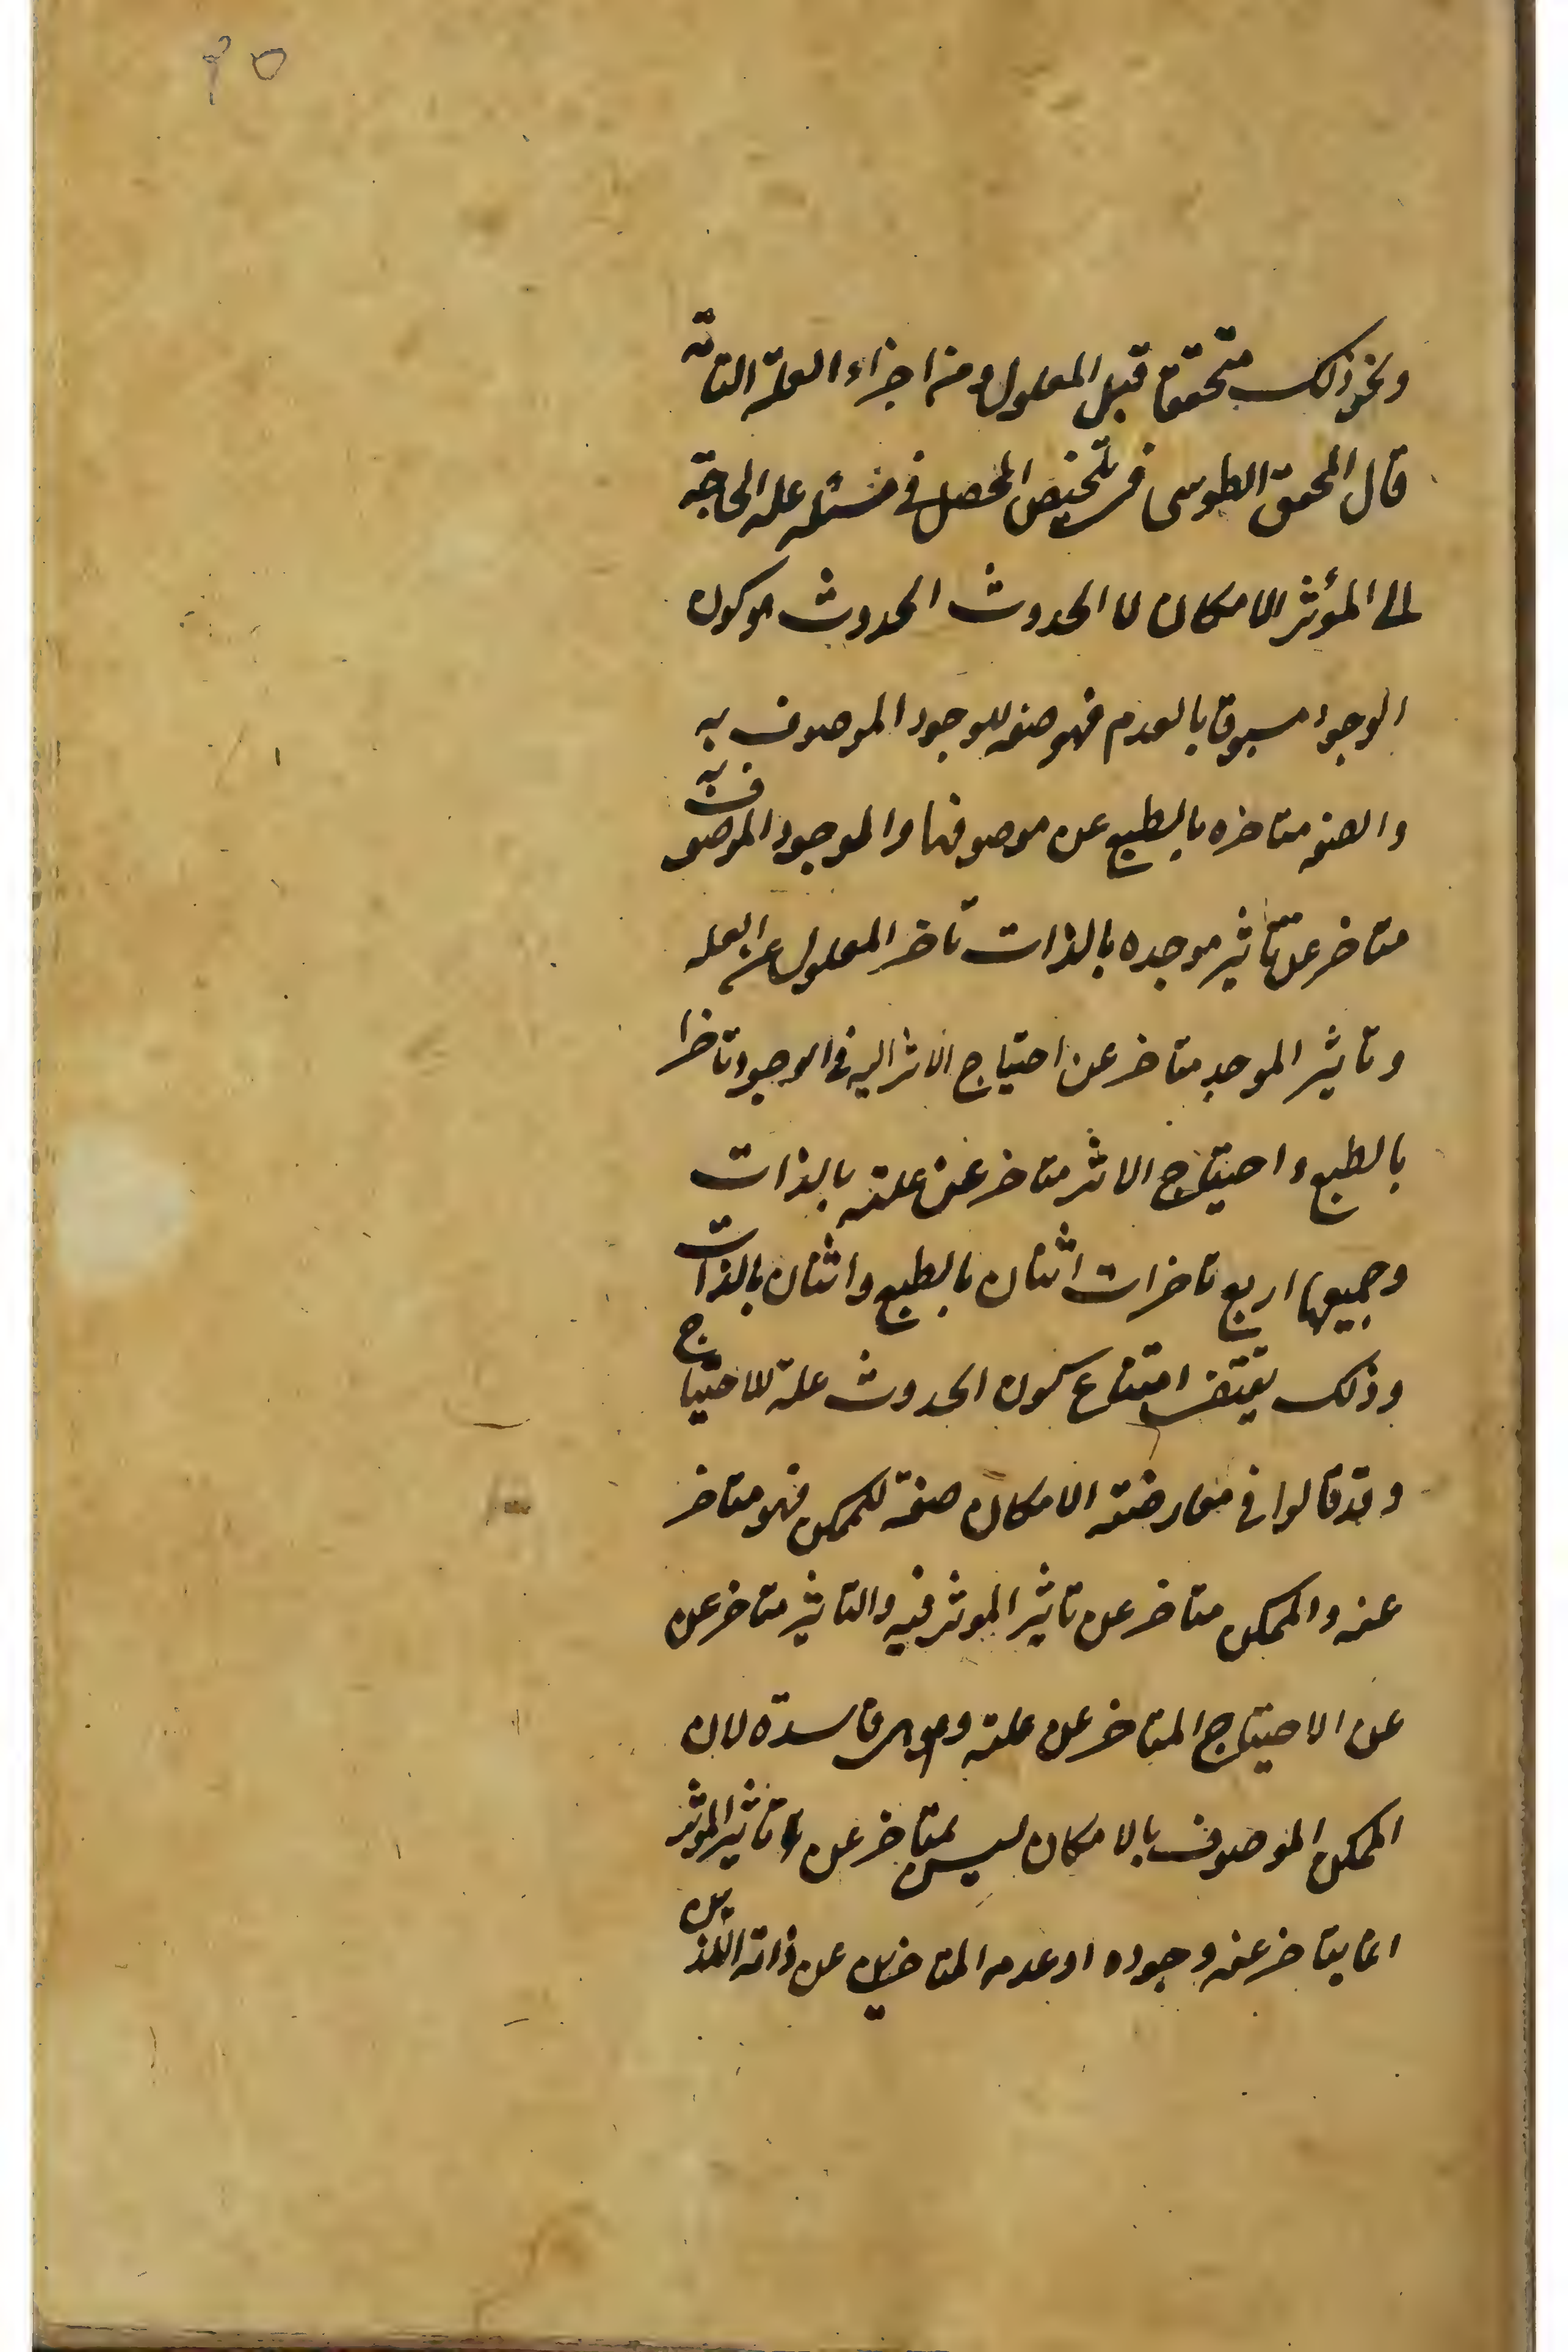 ونحو ذلك متحققا قبل المعلول ومن اجزاء العلة التامة
قال المحقق الطوسى فى تلخيص المحصل فى مسئله علة الحاجة
الى المؤثر الامكان لا الحدوث الحدوث هو كون
الوجود مسبوقا بالعدم فهو صفه للوجود الموصوف به
والصفه متاخره بالطبع عن موصوفها والموجود الموصوف به
متاخر عن تاثير موجده بالذات تاخر المعلول عن العله
وتاثير الموجد متاخر عن احتياج الاثر اليه فى الوجود تاخرا
بالطبع واحتياج الاثر متاخر عن علته بالذات
وجميعها اربع تاخرات اثنان بالطبع واثنان بالذات
وذلك يقتضى امتناع كون الحدوث علة للاحتياج
وقد قالوا فى معارضته الامكان صفة للممكن فهو متاخر
عنه والممكن متاخر عن تاثير الموثر فيه والتاثير متاخر عن
عن الاحتياج المتاخر عن علته وهى فاسدة لان
الممكن الموصوف بالامكان ليس بمتاخر عن تاثير الموثر
انما يتاخر عنه وجوده او عدمه المتاخرين عن ذاته اللذين